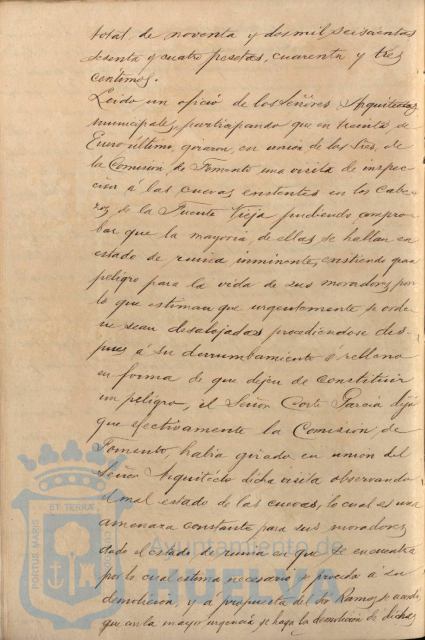 total de noventa y dos mil seiscientas
sesenta y cuatro pesetas, cuarenta y tres
centimos.
Leido un oficio de los Señores Arquitectos
municipales, participando que en treinta de
Enero último, giraron, en union de los Sres. de
la Comision de Fomento una visita de inspec-
cion á las cuevas existentes en los Cabe-
zos de la Fuente Vieja pudiendo compro-
bar que la mayoria de ellas se hallan en
estado de ruina inminente, existiendo gran
peligro para la vida de sus moradores, por
lo que estiman que urgentemente se orde-
ne sean desalojadas procediendose des-
pues á su derrumbamiento ó relleno
en forma de que dejen de constituir
un peligro, el Señor Corte Garcia dijo
que efectivamente la Comision de
Fomento, habia girado en union del
Señor Arquitecto dicha visita observando
el mal estado de las cuevas, lo cual es una
amenaza constante para sus moradores,
dado el estado de ruina en que se encuentra
por lo cual estima necesario se proceda á su
demolicion, y á propuesta del Sr. Ramos, se acordó,
que con la mayor urgencia se haga la demolicion de dichas
PORTUS MARIS ET TERRAE CUSTODIA
Ayuntamiento de
HUELVA